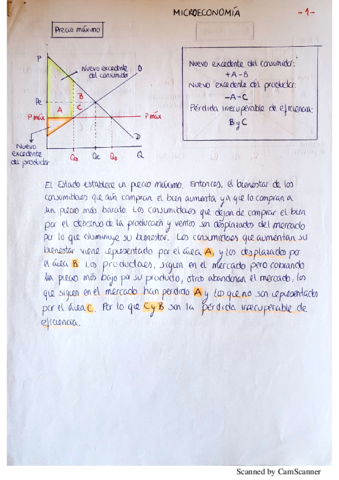 MICROECONOMÍA
-1-
Precio máximo
P
Nuevo excedente
del consumidor
O
A
B
C
Pe
Pmáx
Pmáx
Nuevo
excedente
de productor
D
Qo
Qe
QD
Q
Nuevo excedente del consumidor:
+A-B
Nuevo excedente del productor:
-A-C
Pérdida irrecuperable de eficiencia:
B y C
El Estado establece un precio máximo. Entonces, el bienestar de los
consumidores que aún compran el bien aumenta, ya que lo compran a
un precio más barato. Los consumidores que dejan de comprar el bien
por el descenso de la producción y ventas son desplazados del mercado
por lo que disminuye su bienestar. Los consumidores que aumentan su
bienestar viene representado por el área A, y los desplazados por
el área B. Los productores, siguen en el mercado pero cobrando
un precio más bajo por su producto, otros abandonan el mercado. los
que siguen en el mercado han perdido A y los que no son representados
por el área C. Por lo que C y B son la pérdida irrecuperable de
eficiencia.
Scanned by CamScanner